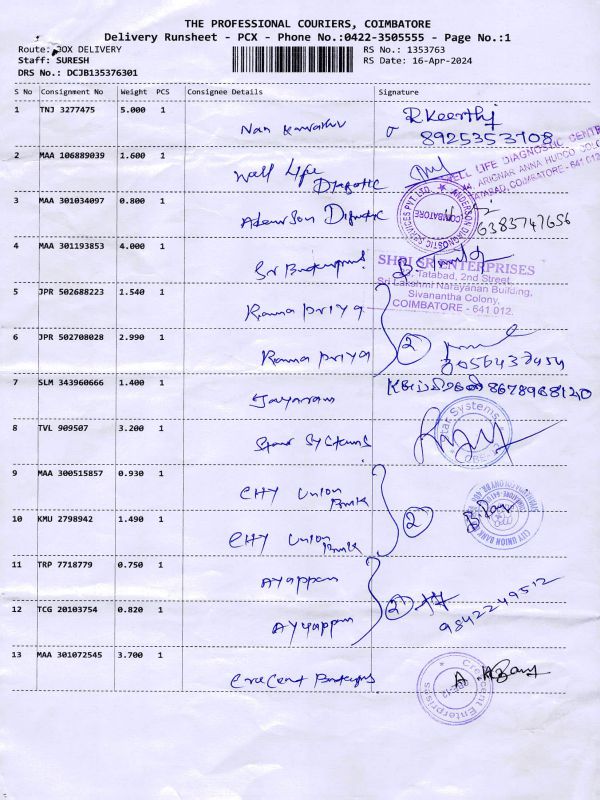 THE PROFESSIONAL COURIERS, COIMBATORE
Delivery Runsheet - PCX - Phone No.:0422-3505555 - Page No.:1
Route: JOX DELIVERY
RS No.: 1353763
Staff: SURESH
RS Date: 16-Apr-2024
DRS No.: DCJB135376301
S No Consignment No Weight PCS Consignee Details Signature
1 TNJ 3277475 5.000 1 R Keerthi
8925353708
2 MAA 106889039 1.600 1 Well Life
WELL LIFE DIAGNOSTIC CENTRE
3 MAA 301034097 0.800 1
ANDERSON DIAGNOSTIC SERVICES PVT. LTD.
COIMBATORE
6385747656
4 MAA 301193853 4.000 1 Sri
SHRI SRI ENTERPRISES
Tatabad, 2nd Street,
Sri Lakshmi Narayanan Building,
Sivanantha Colony,
COIMBATORE - 641 012.
5 JPR 502688223 1.540 1 Rama priya
6 JPR 502708028 2.990 1 Rama priya 2
7 SLM 343960666 1.400 1 Jayaram
8 TVL 909507 3.200 1 Star Systems
Star Systems
9 MAA 300515857 0.930 1 City Union
Bank
CITY UNION BANK
10 KMU 2798942 1.490 1 City Union
Bank 2
11 TRP 7718779 0.750 1 Ayappan
12 TCG 20103754 0.820 1 Ayyappan 2
9842249512
13 MAA 301072545 3.700 1 Crecent
Crescent Enterprises